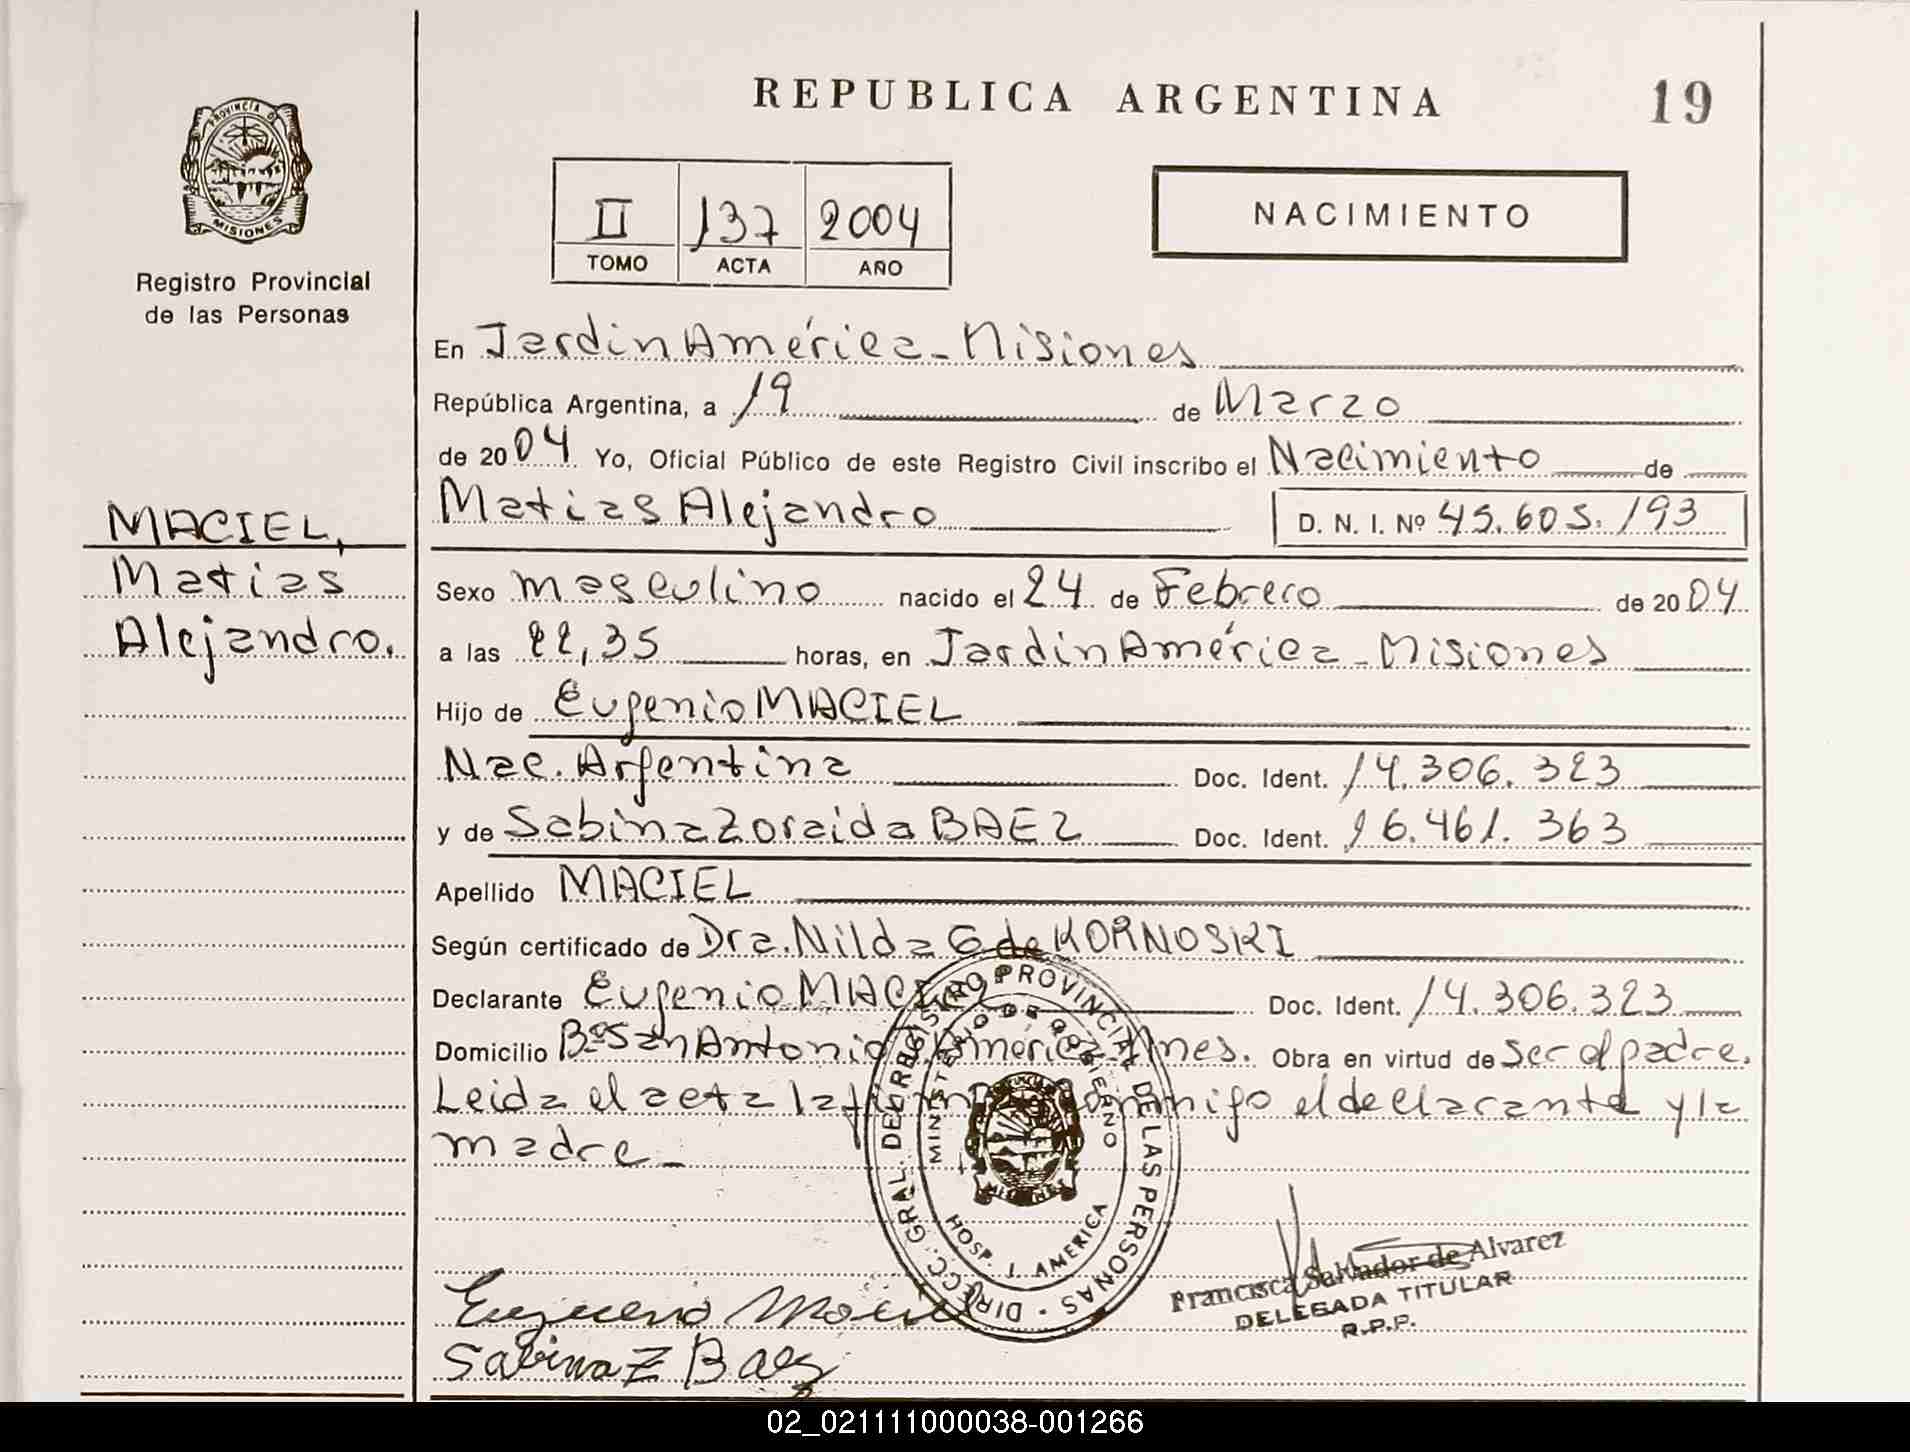 PROVINCIA DE
MISIONES
Registro Provincial
de las Personas
MACIEL,
Matias
Alejandro.
REPUBLICA ARGENTINA
19
II 137 2004
TOMO ACTA AÑO
NACIMIENTO
En Jardin América - Misiones
República Argentina, a 19 de Marzo
de 2004 Yo, Oficial Público de este Registro Civil inscribo el Nacimiento de
Matias Alejandro D. N. I. Nº 45.605.193
Sexo masculino nacido el 24 de Febrero de 2004
a las 22,35 horas, en Jardin América - Misiones
Hijo de Eugenio MACIEL
Nac. Argentina Doc. Ident. 14.306.323
y de Sabina Zoraida BAEZ Doc. Ident. 16.461.363
Apellido MACIEL
Según certificado de Dra. Nilda G de KORNOSKI
Declarante Eugenio MACIEL Doc. Ident. 14.306.323
Domicilio Bº San Antonio J. América Mnes. Obra en virtud de ser el padre.
Leida el acta la firman conmigo el declarante y la
madre -
DIRECC. GRAL. DEL REGISTRO PROVINCIAL DE LAS PERSONAS
MINISTERIO DE GOBIERNO
MISIONES
HOSP. J. AMERICA
Francisca Salvador de Alvarez
DELEGADA TITULAR
R.P.P.
Eugenio Maciel
Sabina Z Baez
02_021111000038-001266